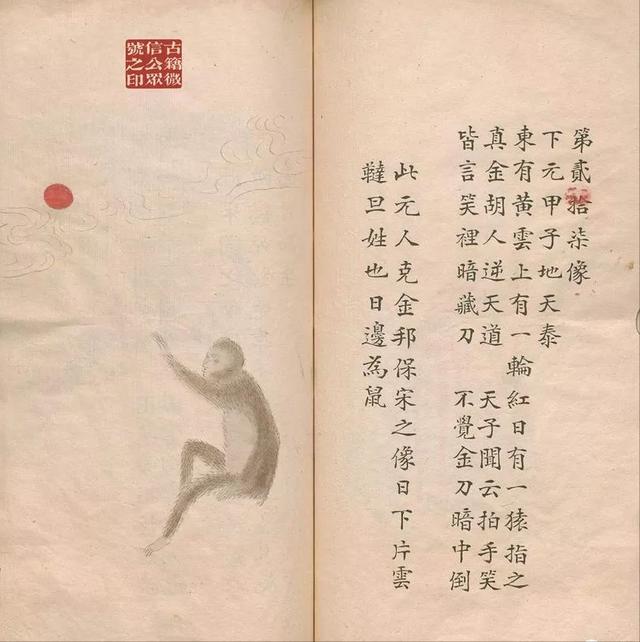 第貳拾柒像
下元甲子地天泰
東有黃雲上有一輪紅日有一猿指之
真金胡人逆天道 天子聞云拍手笑
皆言笑裡暗藏刀 不覺金刀暗中倒
此元人克金邦保宋之像日下片雲
韃旦姓也日邊為鼠
古籍微
信公眾
號之印